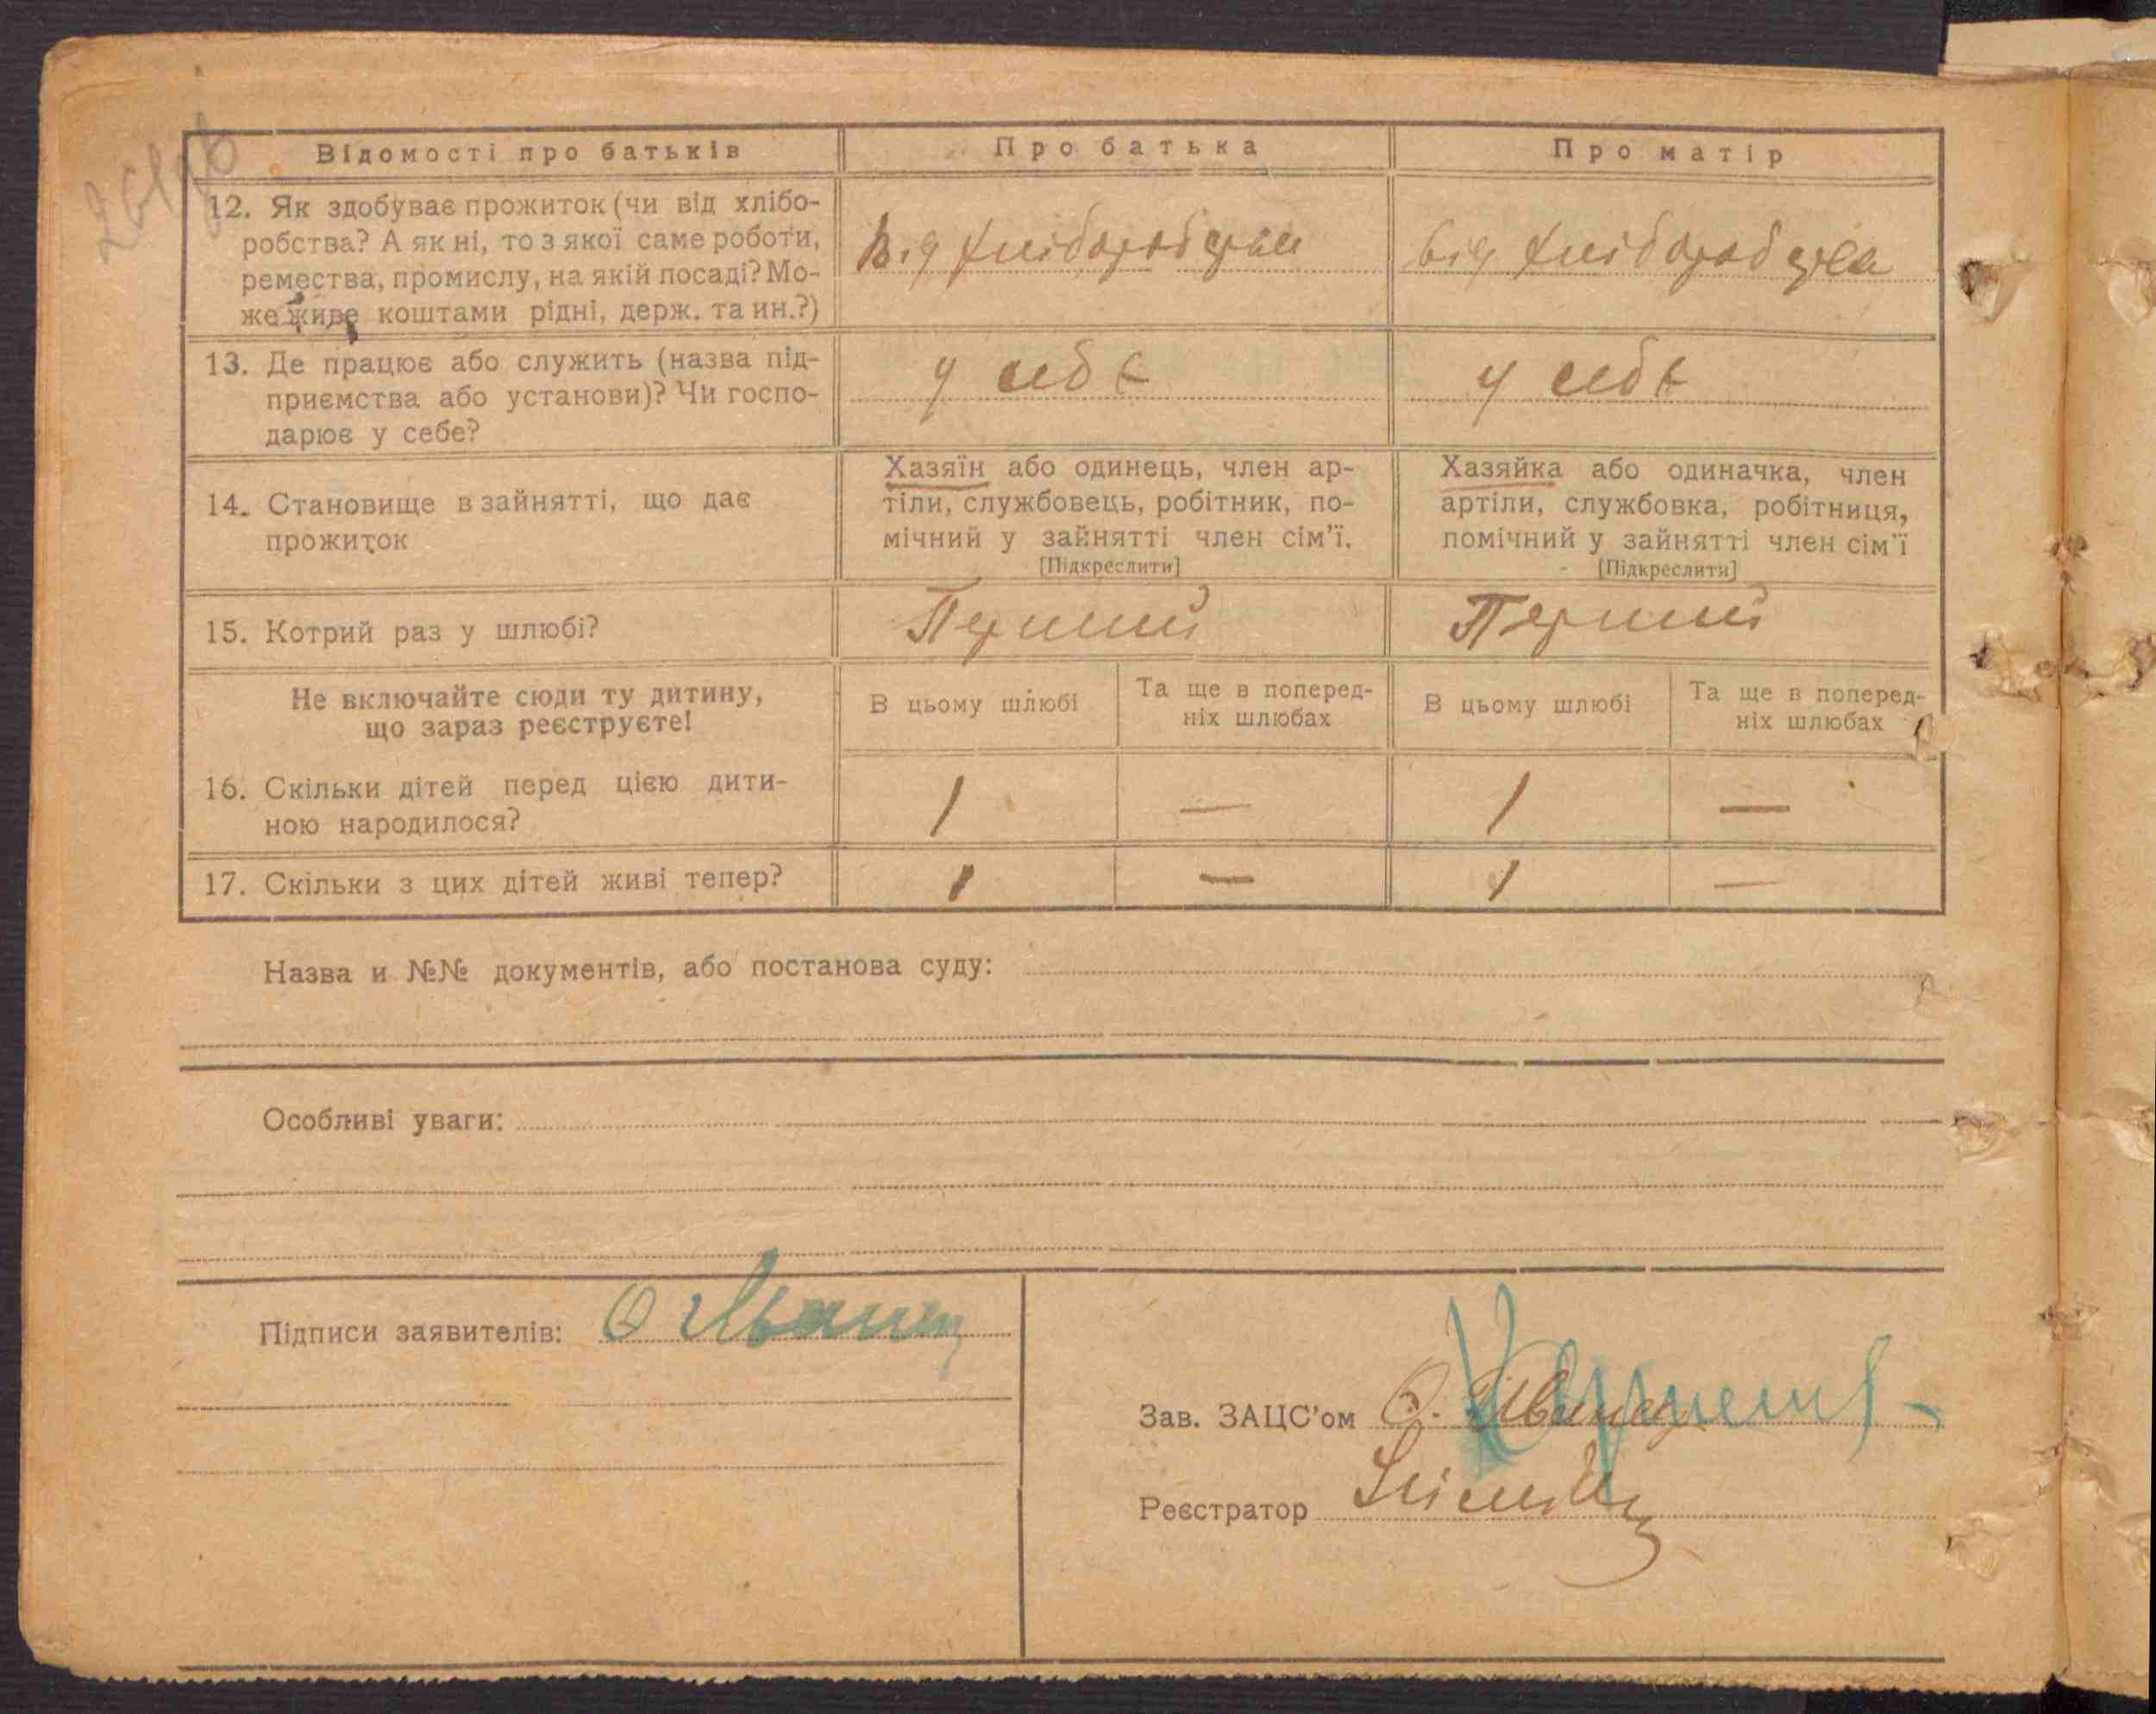 Відомості про батьків
Про батька
Про матір
12. Як здобуває прожиток (чи від хлібо-
робства? А як ні, то з якої саме роботи,
ремества, промислу, на якій посаді? Мо-
же живе коштами рідні, держ. та ин.?)
Від хліборобства
від хліборобства
13. Де працює або служить (назва під-
приємства або установи)? Чи госпо-
дарює у себе?
у себе
у себе
14. Становище в зайнятті, що дає
прожиток
Хазяїн або одинець, член ар-
тіли, службовець, робітник, по-
мічний у зайнятті член сім'ї.
[Підкреслити]
Хазяйка або одиначка, член
артіли, службовка, робітниця,
помічний у зайнятті член сім'ї
[Підкреслити]
15. Котрий раз у шлюбі?
Перший
Перший
Не включайте сюди ту дитину,
що зараз реєструєте!
В цьому шлюбі
Та ще в поперед-
ніх шлюбах
В цьому шлюбі
Та ще в поперед-
ніх шлюбах
16. Скільки дітей перед цією дити-
ною народилося?
1
—
1
—
17. Скільки з цих дітей живі тепер?
1
—
1
—
Назва и №№ документів, або постанова суду:
Особливі уваги:
Підписи заявителів:
Зав. ЗАЦС'ом
Реєстратор